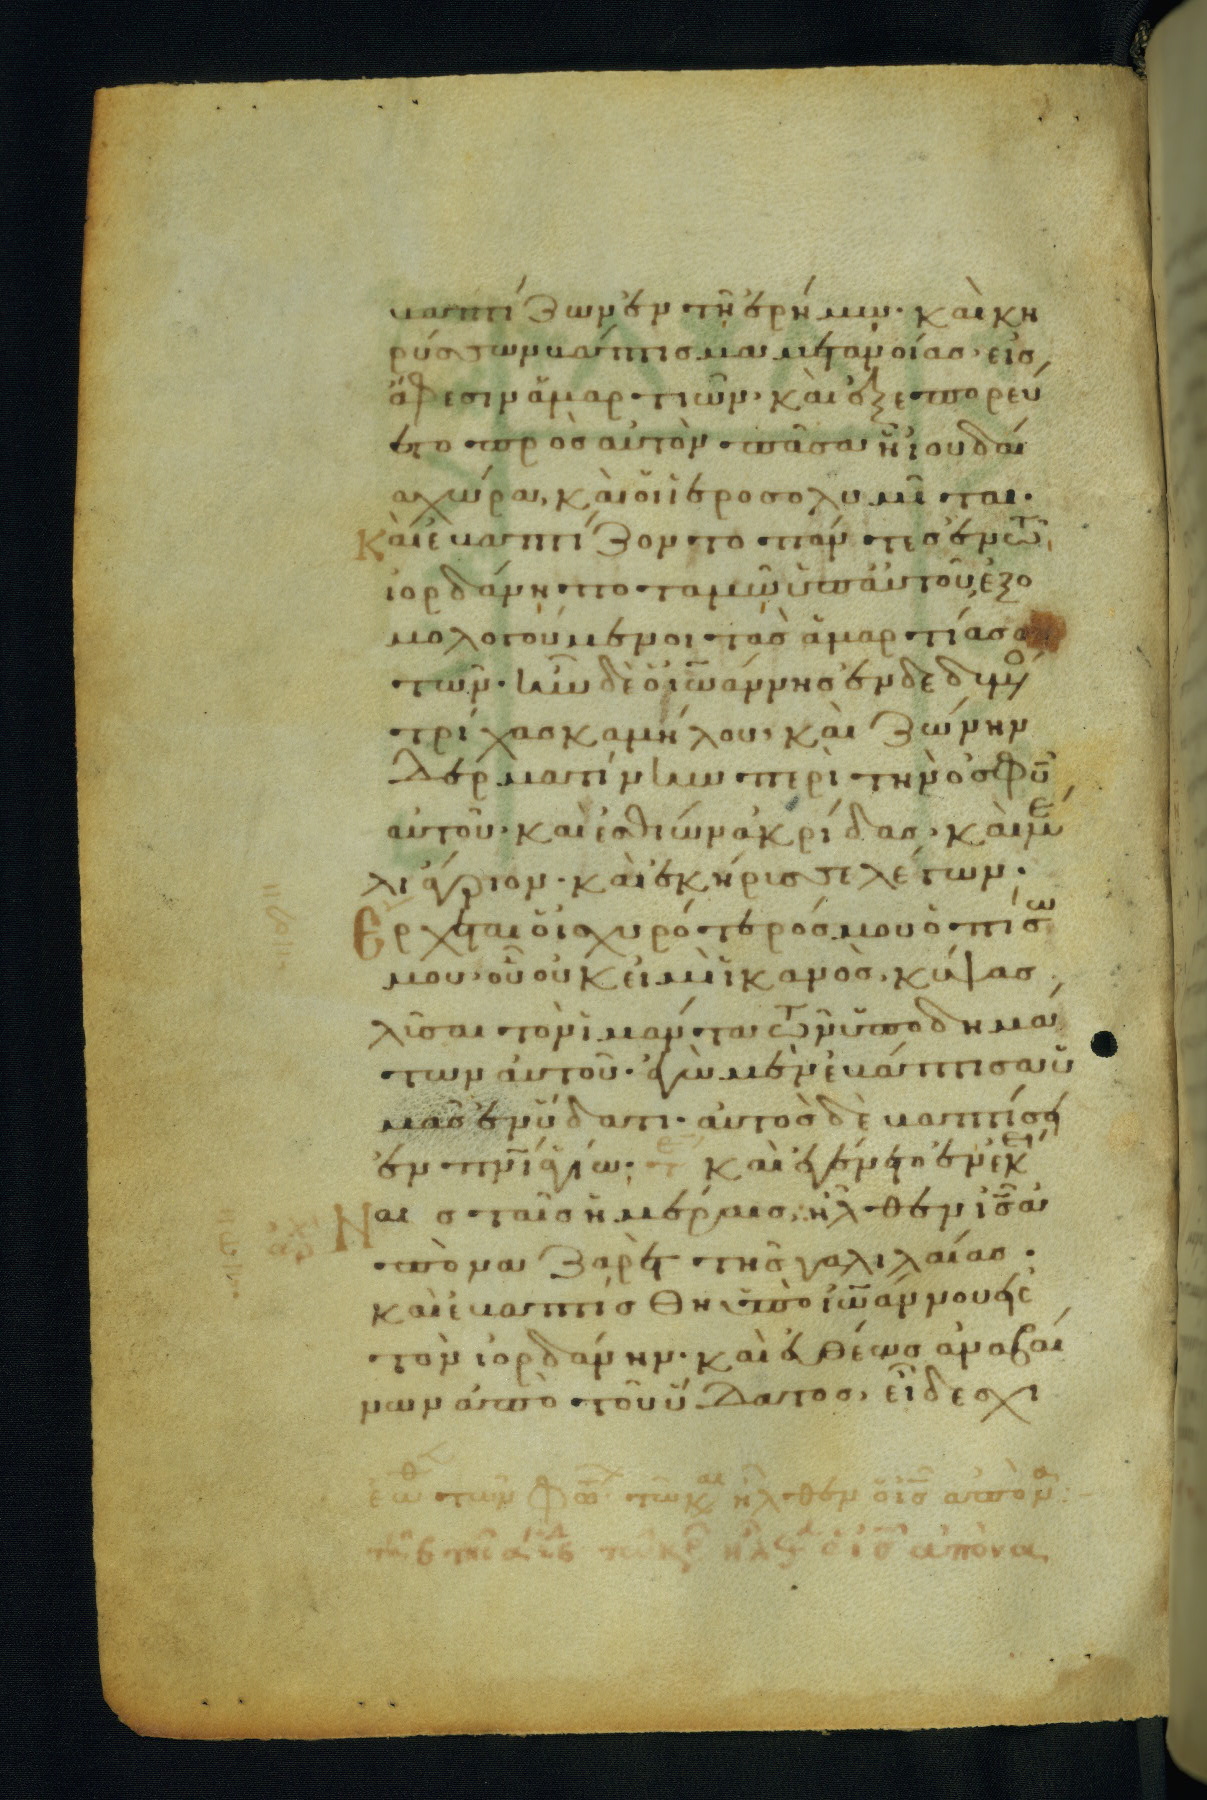 βαπτίζων ἐν τῆ ἐρήμω· καὶ κη
ρύσσων βάπτισμα μετανοίας, εἰς
ἄφεσιν ἁμαρτιῶν· καὶ ἐξεπορεύ
ετο πρὸς αὐτὸν πᾶσα ἡ ἰουδαί
α χώρα, καὶ οἱ ἱεροσολυμῖται·
Καὶ ἐβαπτίζοντο πάντες ἐν τῶ
ἰορδάνη ποταμῶ ὑπ' αὐτοῦ, ἐξο
μολογούμενοι τὰς ἁμαρτίας αὐ
τῶν· ἦν δὲ ὁ ἰωάννης ἐνδεδυμένος
τρίχας καμήλου, καὶ ζώνην
δερματίνην περὶ τὴν ὀσφὺν
αὐτοῦ· καὶ ἐσθίων ἀκρίδας, καὶ μέ
λι ἄγριον· καὶ ἐκήρυσσε λέγων·
Ερχεται ὁ ἰσχυρότερός μου ὀπίσω
μου, οὗ οὐκ εἰμὶ ἱκανὸς, κύψας
λῦσαι τὸν ἱμάντα τῶν ὑποδημά
των αὐτοῦ· ἐγὼ μὲν ἐβάπτισα ὑ
μᾶς ἐν ὕδατι· αὐτὸς δὲ βαπτίσει
ἐν πνι ἁγίω· καὶ ἐγένετο ἐν ἐκεί
ναις ταῖς ἡμέραις, ἦλθεν ις ἀ
πὸ ναζαρὲτ τῆς γαλιλαίας·
καὶ ἐβαπτίσθη ὑπὸ ἰωάννου εἰς
τὸν ἰορδάνην· καὶ εὐθέως ἀναβαί
νων ἀπὸ τοῦ ὕδατος, εἶδε σχι
τῶν φώτ τῶ κ ἦλθεν ὁ ις ἀπὸ να